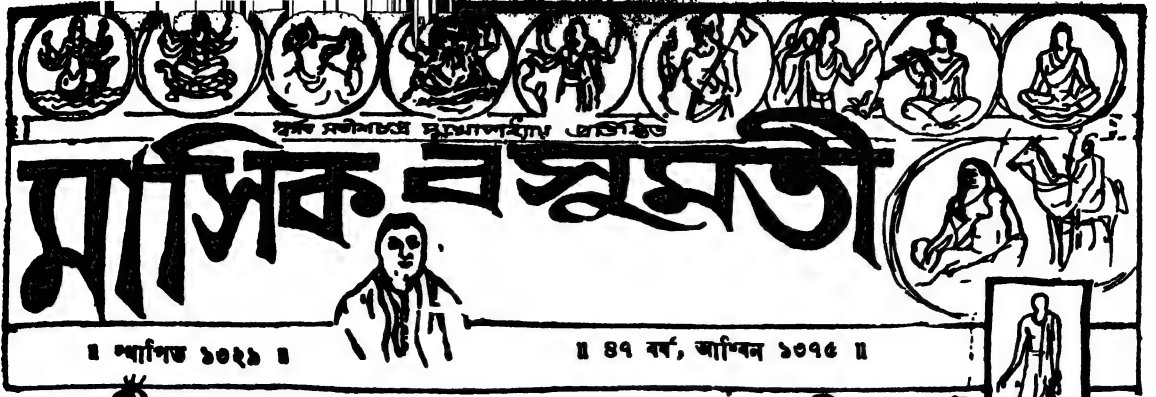 স্বর্গত সতীশচন্দ্র মুখোপাধ্যায় প্রতিষ্ঠিত
মাসিক বসুমতী
॥ স্থাপিত ১৩২৯ ॥
॥ ৪৭ বর্ষ, আশ্বিন ১৩৭৫ ॥